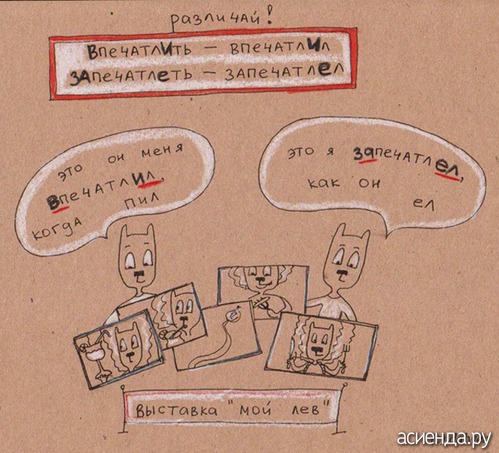 различай!
впечатлИть – впечатлИл
ЗАпечатлеть – запечатлел
это он меня
впечатлил,
когда пил
это я запечатлел,
как он
ел
выставка "мой лев"
асиенда.ру